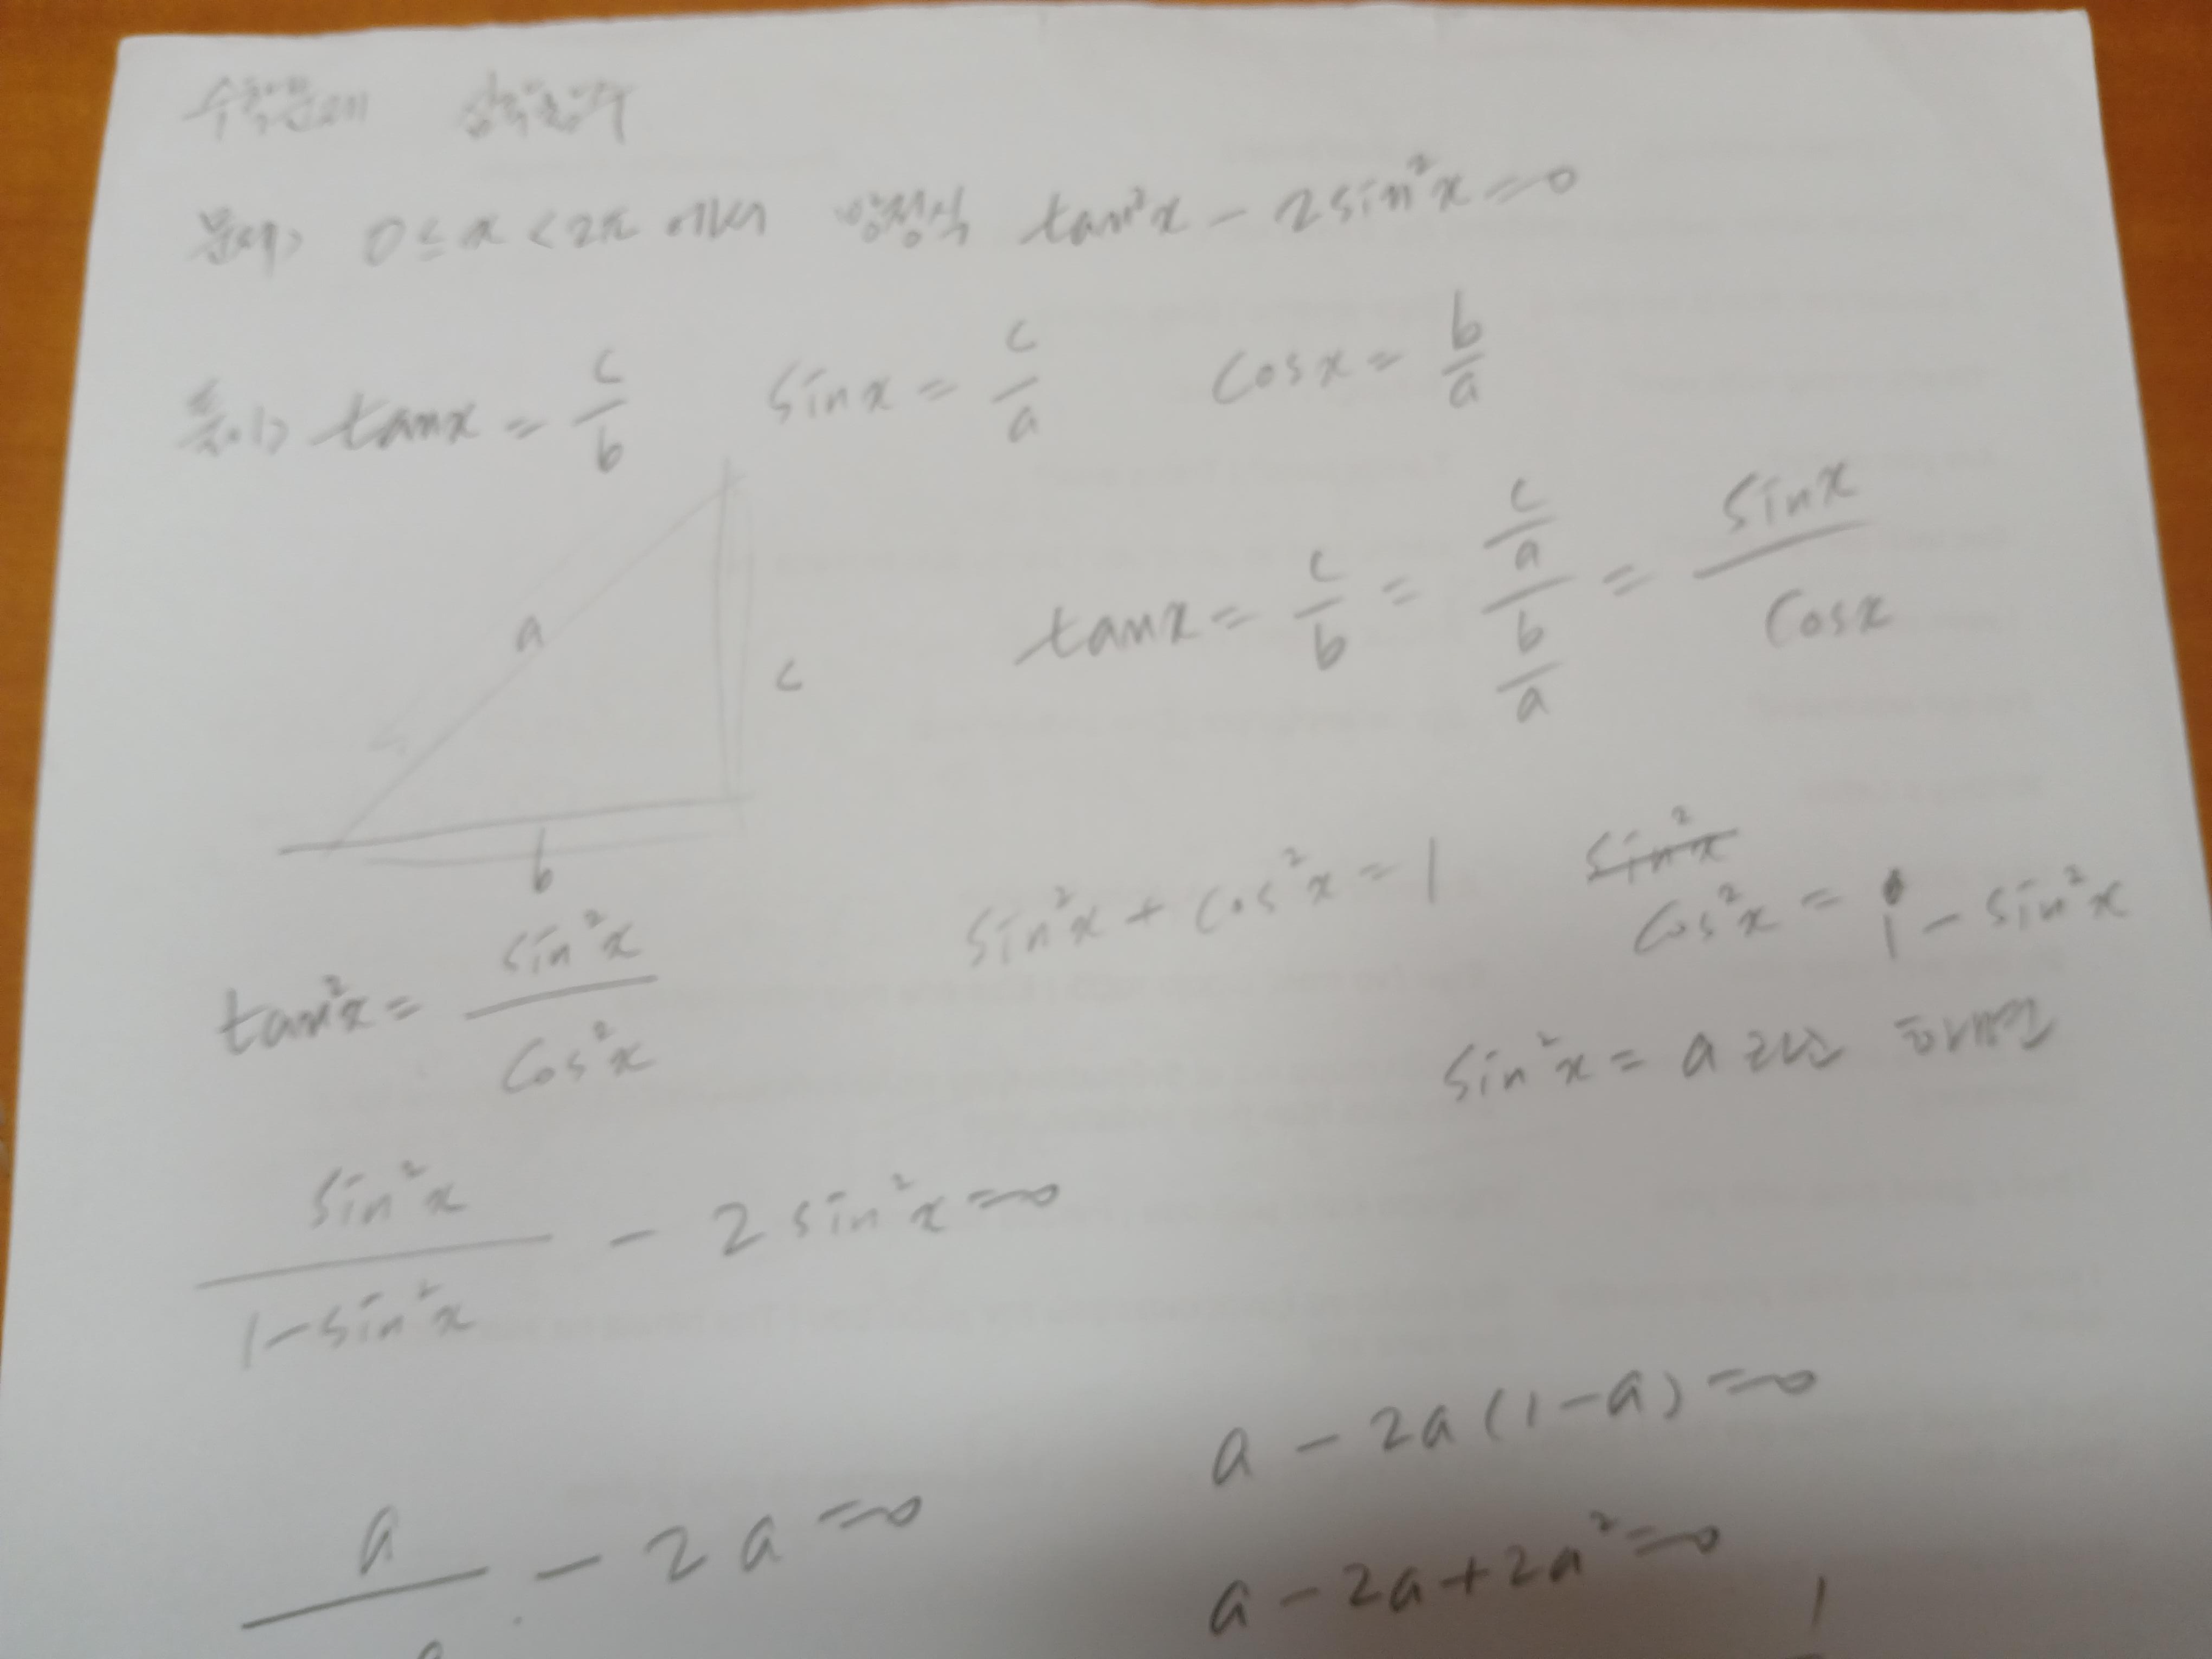 수학문제 삼각함수
문제> 0 ≤ x < 2π 에서 방정식 tan²x - 2sin²x = 0
풀이> tanx = c/b sinx = c/a cosx = b/a
a
c
b
tanx = c/b = (c/a)/(b/a) = sinx/cosx
sin²x + cos²x = 1 sin²x
cos²x = 1 - sin²x
tan²x = sin²x/cos²x
sin²x = a 라고 하면
sin²x/(1-sin²x) - 2sin²x = 0
a - 2a(1-a) = 0
a - 2a = 0
a - 2a + 2a² = 0
1